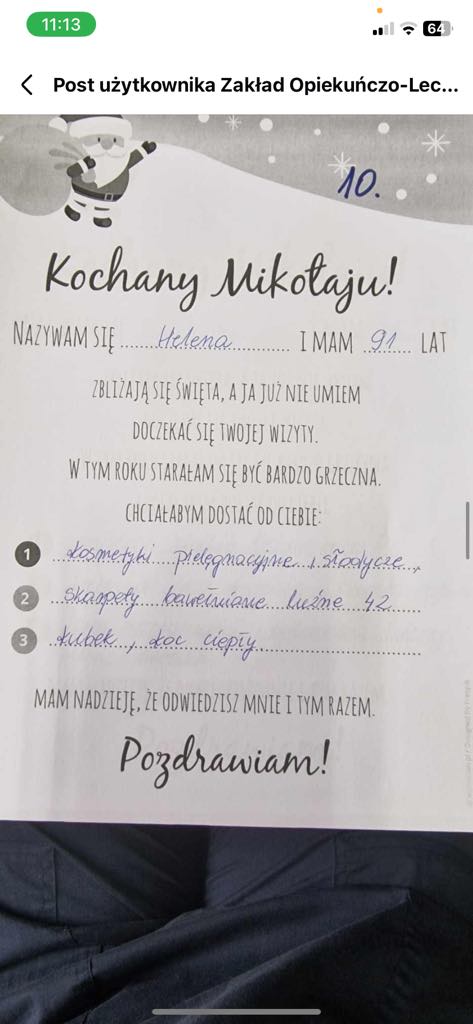 11:13
64
Post użytkownika Zakład Opiekuńczo-Lec...
10.
Kochany Mikołaju!
NAZYWAM SIĘ Helena I MAM 91 LAT
ZBLIŻAJĄ SIĘ ŚWIĘTA, A JA JUŻ NIE UMIEM
DOCZEKAĆ SIĘ TWOJEJ WIZYTY.
W TYM ROKU STARAŁAM SIĘ BYĆ BARDZO GRZECZNA.
CHCIAŁABYM DOSTAĆ OD CIEBIE:
1 kosmetyki pielęgnacyjne, słodycze,
2 skarpety bawełniane luźne 42
3 kubek, koc ciepły
MAM NADZIEJĘ, ŻE ODWIEDZISZ MNIE I TYM RAZEM.
Pozdrawiam!